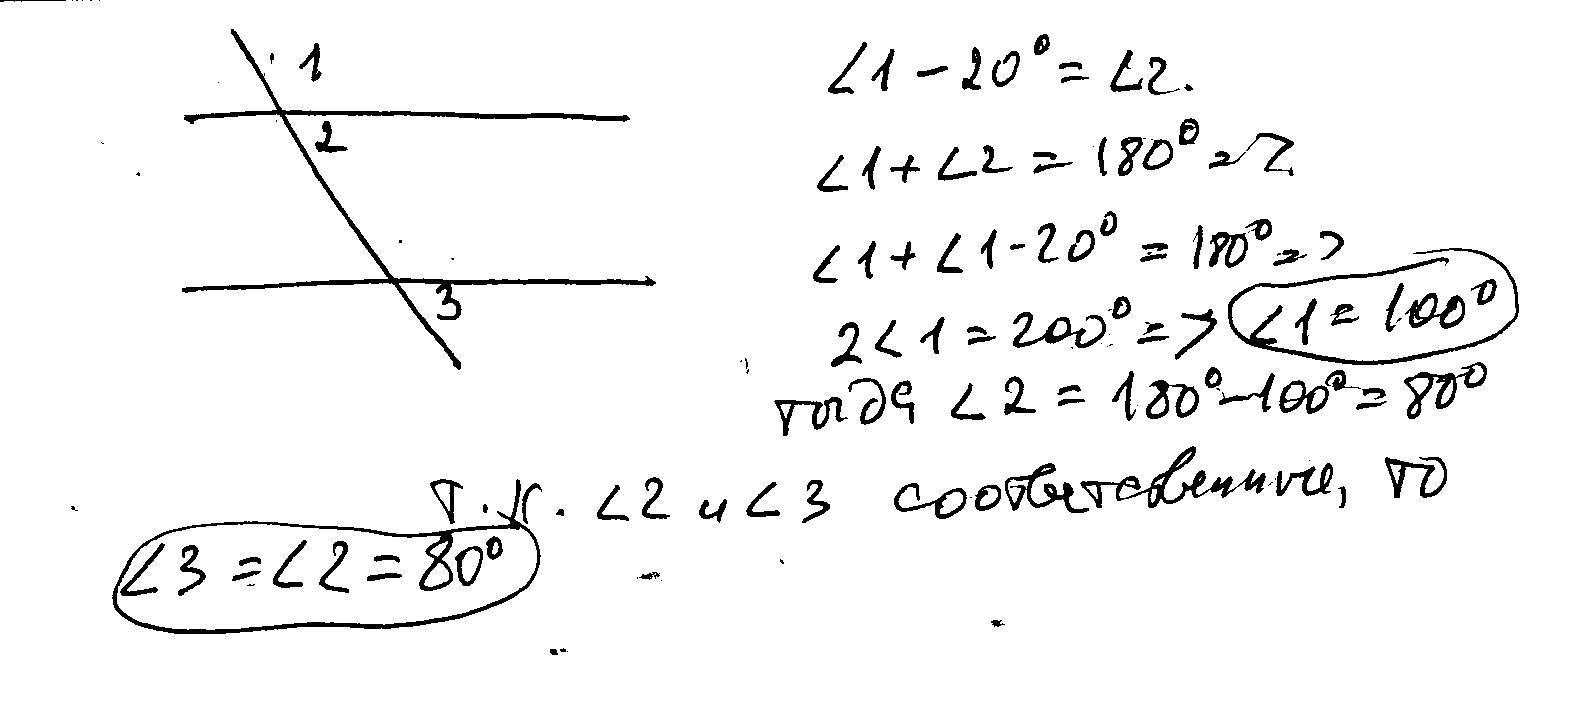 1
2
3
∠1 - 20° = ∠2.
∠1 + ∠2 = 180° =>
∠1 + ∠1 - 20° = 180° =>
2∠1 = 200° => ∠1 = 100°
тогда ∠2 = 180° - 100° = 80°
т.к. ∠2 и ∠3 соответственные, то
∠3 = ∠2 = 80°